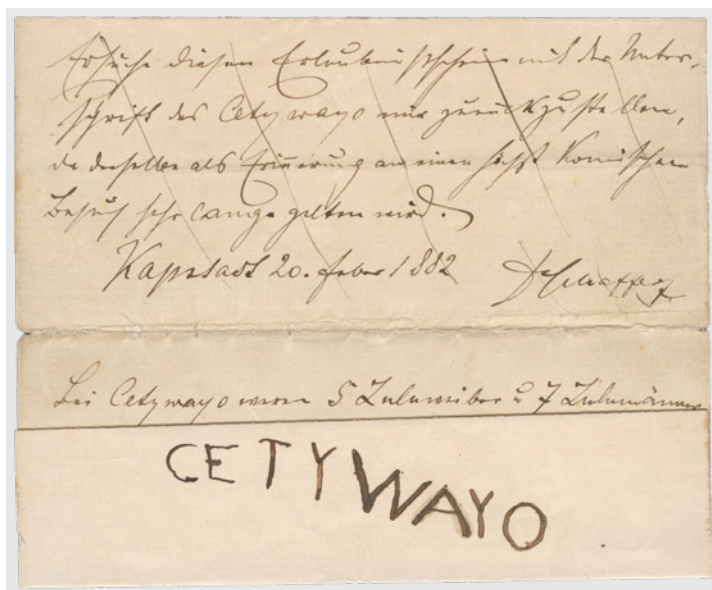 Ersuche diesen Erlaubnisschein mit der Unter-
schrift des Cetywayo mir zurückzustellen,
da derselbe als Erinerung an einen höchst komischen
Besuch sehr lange gelten wird.
Kapstadt 20. Feber 1882 Dr Schaffer
Bei Cetywayo waren 5 Zuluweiber u 7 Zulumänner
CETYWAYO